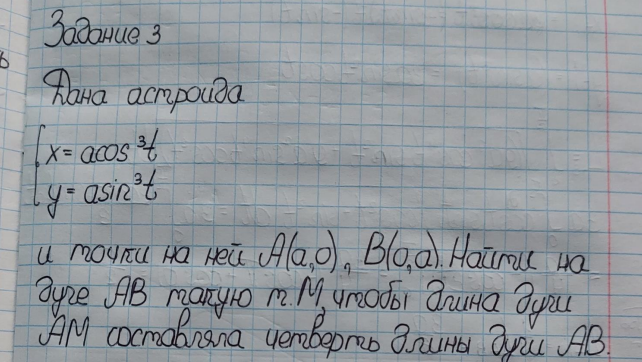 Задание 3
Дана астроида
x = acos³t
y = asin³t
и точки на ней A(a,0), B(0,a). Найти на
дуге AB такую т. M, чтобы длина дуги
AM составляла четверть длины дуги AB.